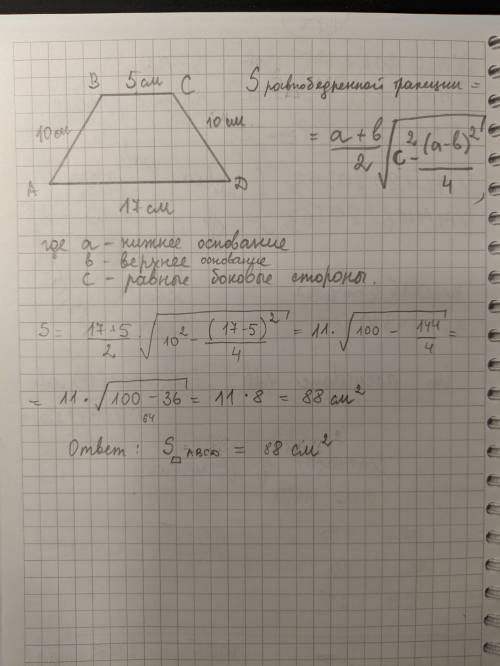 B 5 см C
S равнобедренной трапеции =
10 см
10 см
= a + b / 2 √(c² - (a-b)² / 4) ,
A
D
17 см
где a - нижнее основание
b - верхнее основание
c - равные боковые стороны.
S = 17+5 / 2 √(10² - (17-5)² / 4) = 11 · √(100 - 144 / 4) =
= 11 · √(100 - 36) = 11 · 8 = 88 см²
64
Ответ: S▱ABCD = 88 см²